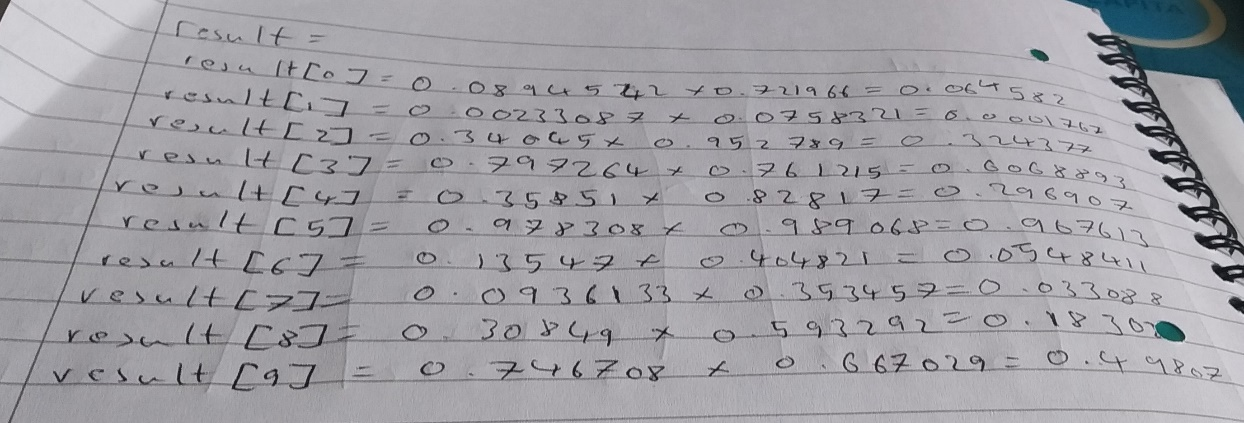 result =
result[0] = 0.08945742 × 0.721966 = 0.064582
result[1] = 0.00233087 × 0.0758321 = 0.0001767
result[2] = 0.34045 × 0.952789 = 0.324377
result[3] = 0.797264 × 0.761215 = 0.6068893
result[4] = 0.35851 × 0.82817 = 0.296907
result[5] = 0.978308 × 0.989068 = 0.967613
result[6] = 0.13547 × 0.404821 = 0.0548411
result[7] = 0.0936133 × 0.353457 = 0.033088
result[8] = 0.30849 × 0.593292 =
result[9] = 0.746708 × 0.667029 = 0.49807